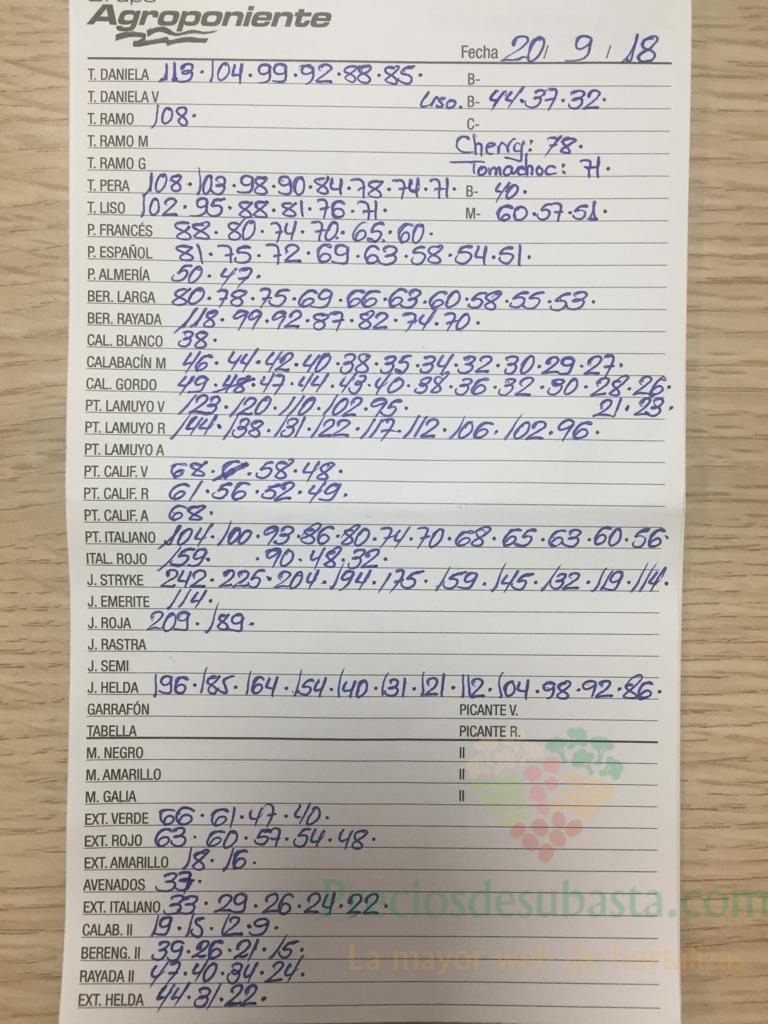 Grupo
Agroponiente
Fecha 20/ 9 / 18
T. DANIELA 113·104·99·92·88·85· B-
T. DANELA V Liso. B- 44·37·32·
T. RAMO 108· C-
T. RAMO M Cherry: 78·
T. RAMO G Tomachoc: 71·
T. PERA 108·103·98·90·84·78·74·71· B- 40·
T. LISO 102·95·88·81·76·71· M- 60·57·51·
P. FRANCÉS 88·80·74·70·65·60·
P. ESPAÑOL 81·75·72·69·63·58·54·51·
P. ALMERÍA 50·47·
BER. LARGA 80·78·75·69·66·63·60·58·55·53·
BER. RAYADA 118·99·92·87·82·74·70·
CAL. BLANCO 38·
CALABACÍN M 46·44·42·40·38·35·34·32·30·29·27·
CAL. GORDO 49·48·47·44·43·40·38·36·32·30·28·26·
PT. LAMUYO V 123·120·110·102·95· 21·23·
PT. LAMUYO R 144·138·131·122·117·112·106·102·96·
PT. LAMUYO A
PT. CALIF. V 68· 58·48·
PT. CALIF. R 61·56·52·49·
PT. CALIF. A 68·
PT. ITALIANO 104·100·93·86·80·74·70·68·65·63·60·56·
ITAL. ROJO 159· ·90·48·32·
J. STRYKE 242·225·204·194·175·159·145·132·119·114·
J. EMERITE 114·
J. ROJA 209·189·
J. RASTRA
J. SEMI
J. HELDA 196·185·164·154·140·131·121·112·104·98·92·86·
GARRAFÓN PICANTE V.
TABELLA PICANTE R.
M. NEGRO II
M. AMARILLO II
M. GALIA II
EXT. VERDE 66·61·47·40·
EXT. ROJO 63·60·57·54·48·
EXT. AMARILLO 18·16·
AVENADOS 37·
EXT. ITALIANO 33·29·26·24·22·
CALAB. II 19·15·12·9·
BERENG. II 39·26·21·15·
RAYADA II 47·40·34·24·
EXT. HELDA 44·31·22·
Preciosdesubasta.com
La mayor web de hortalizas